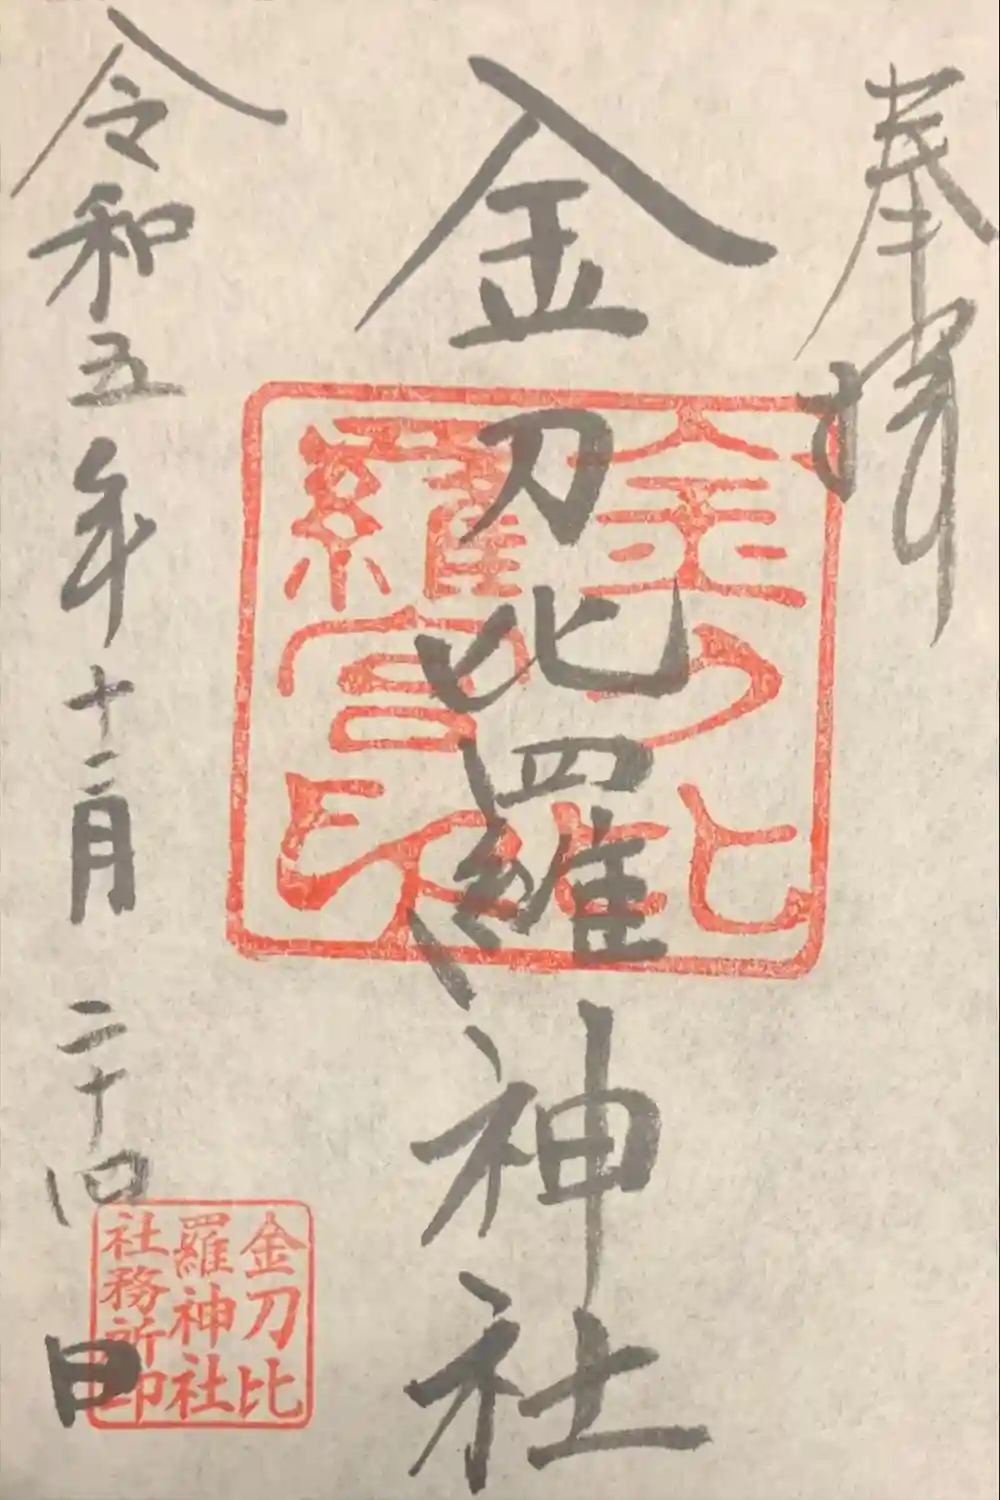 奉拝
金刀比羅神社
金刀比
羅宮印
令和五年十二月二十四日
金刀比
羅神社
社務所印